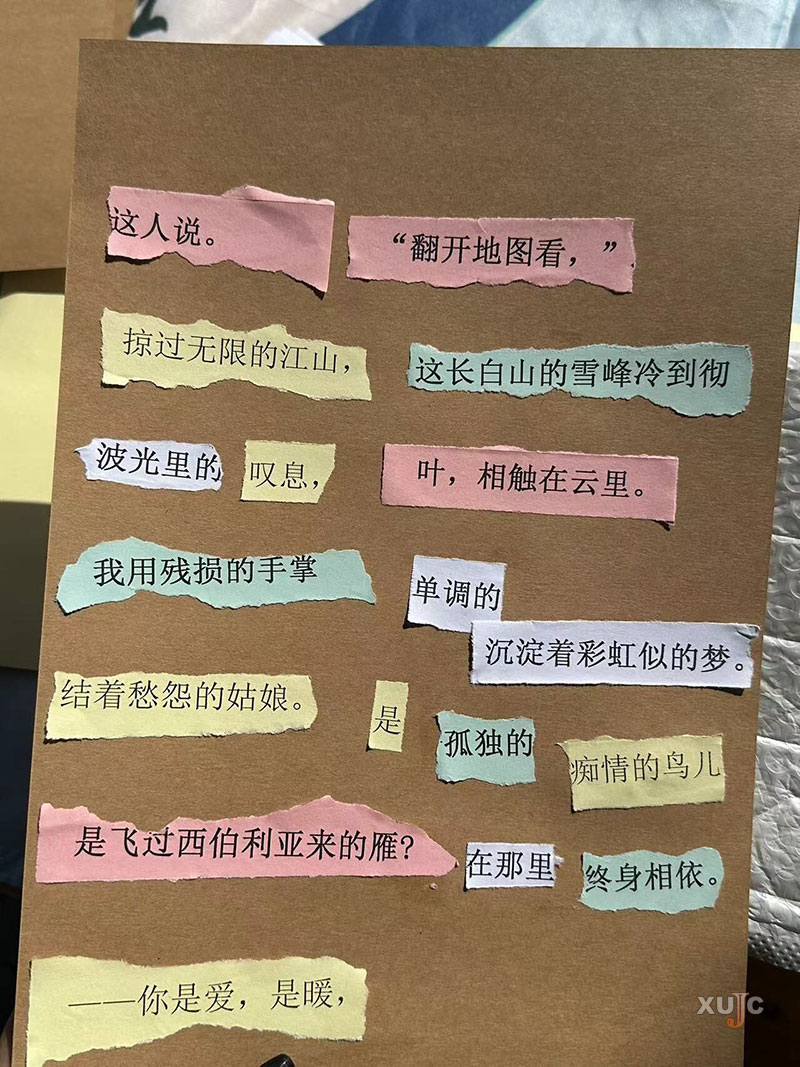 这人说。 “翻开地图看，”
掠过无限的江山， 这长白山的雪峰冷到彻
波光里的 叹息， 叶，相触在云里。
我用残损的手掌 单调的
沉淀着彩虹似的梦。
结着愁怨的姑娘。 是 孤独的 痴情的鸟儿
是飞过西伯利亚来的雁? 在那里 终身相依。
——你是爱，是暖，
XUJC